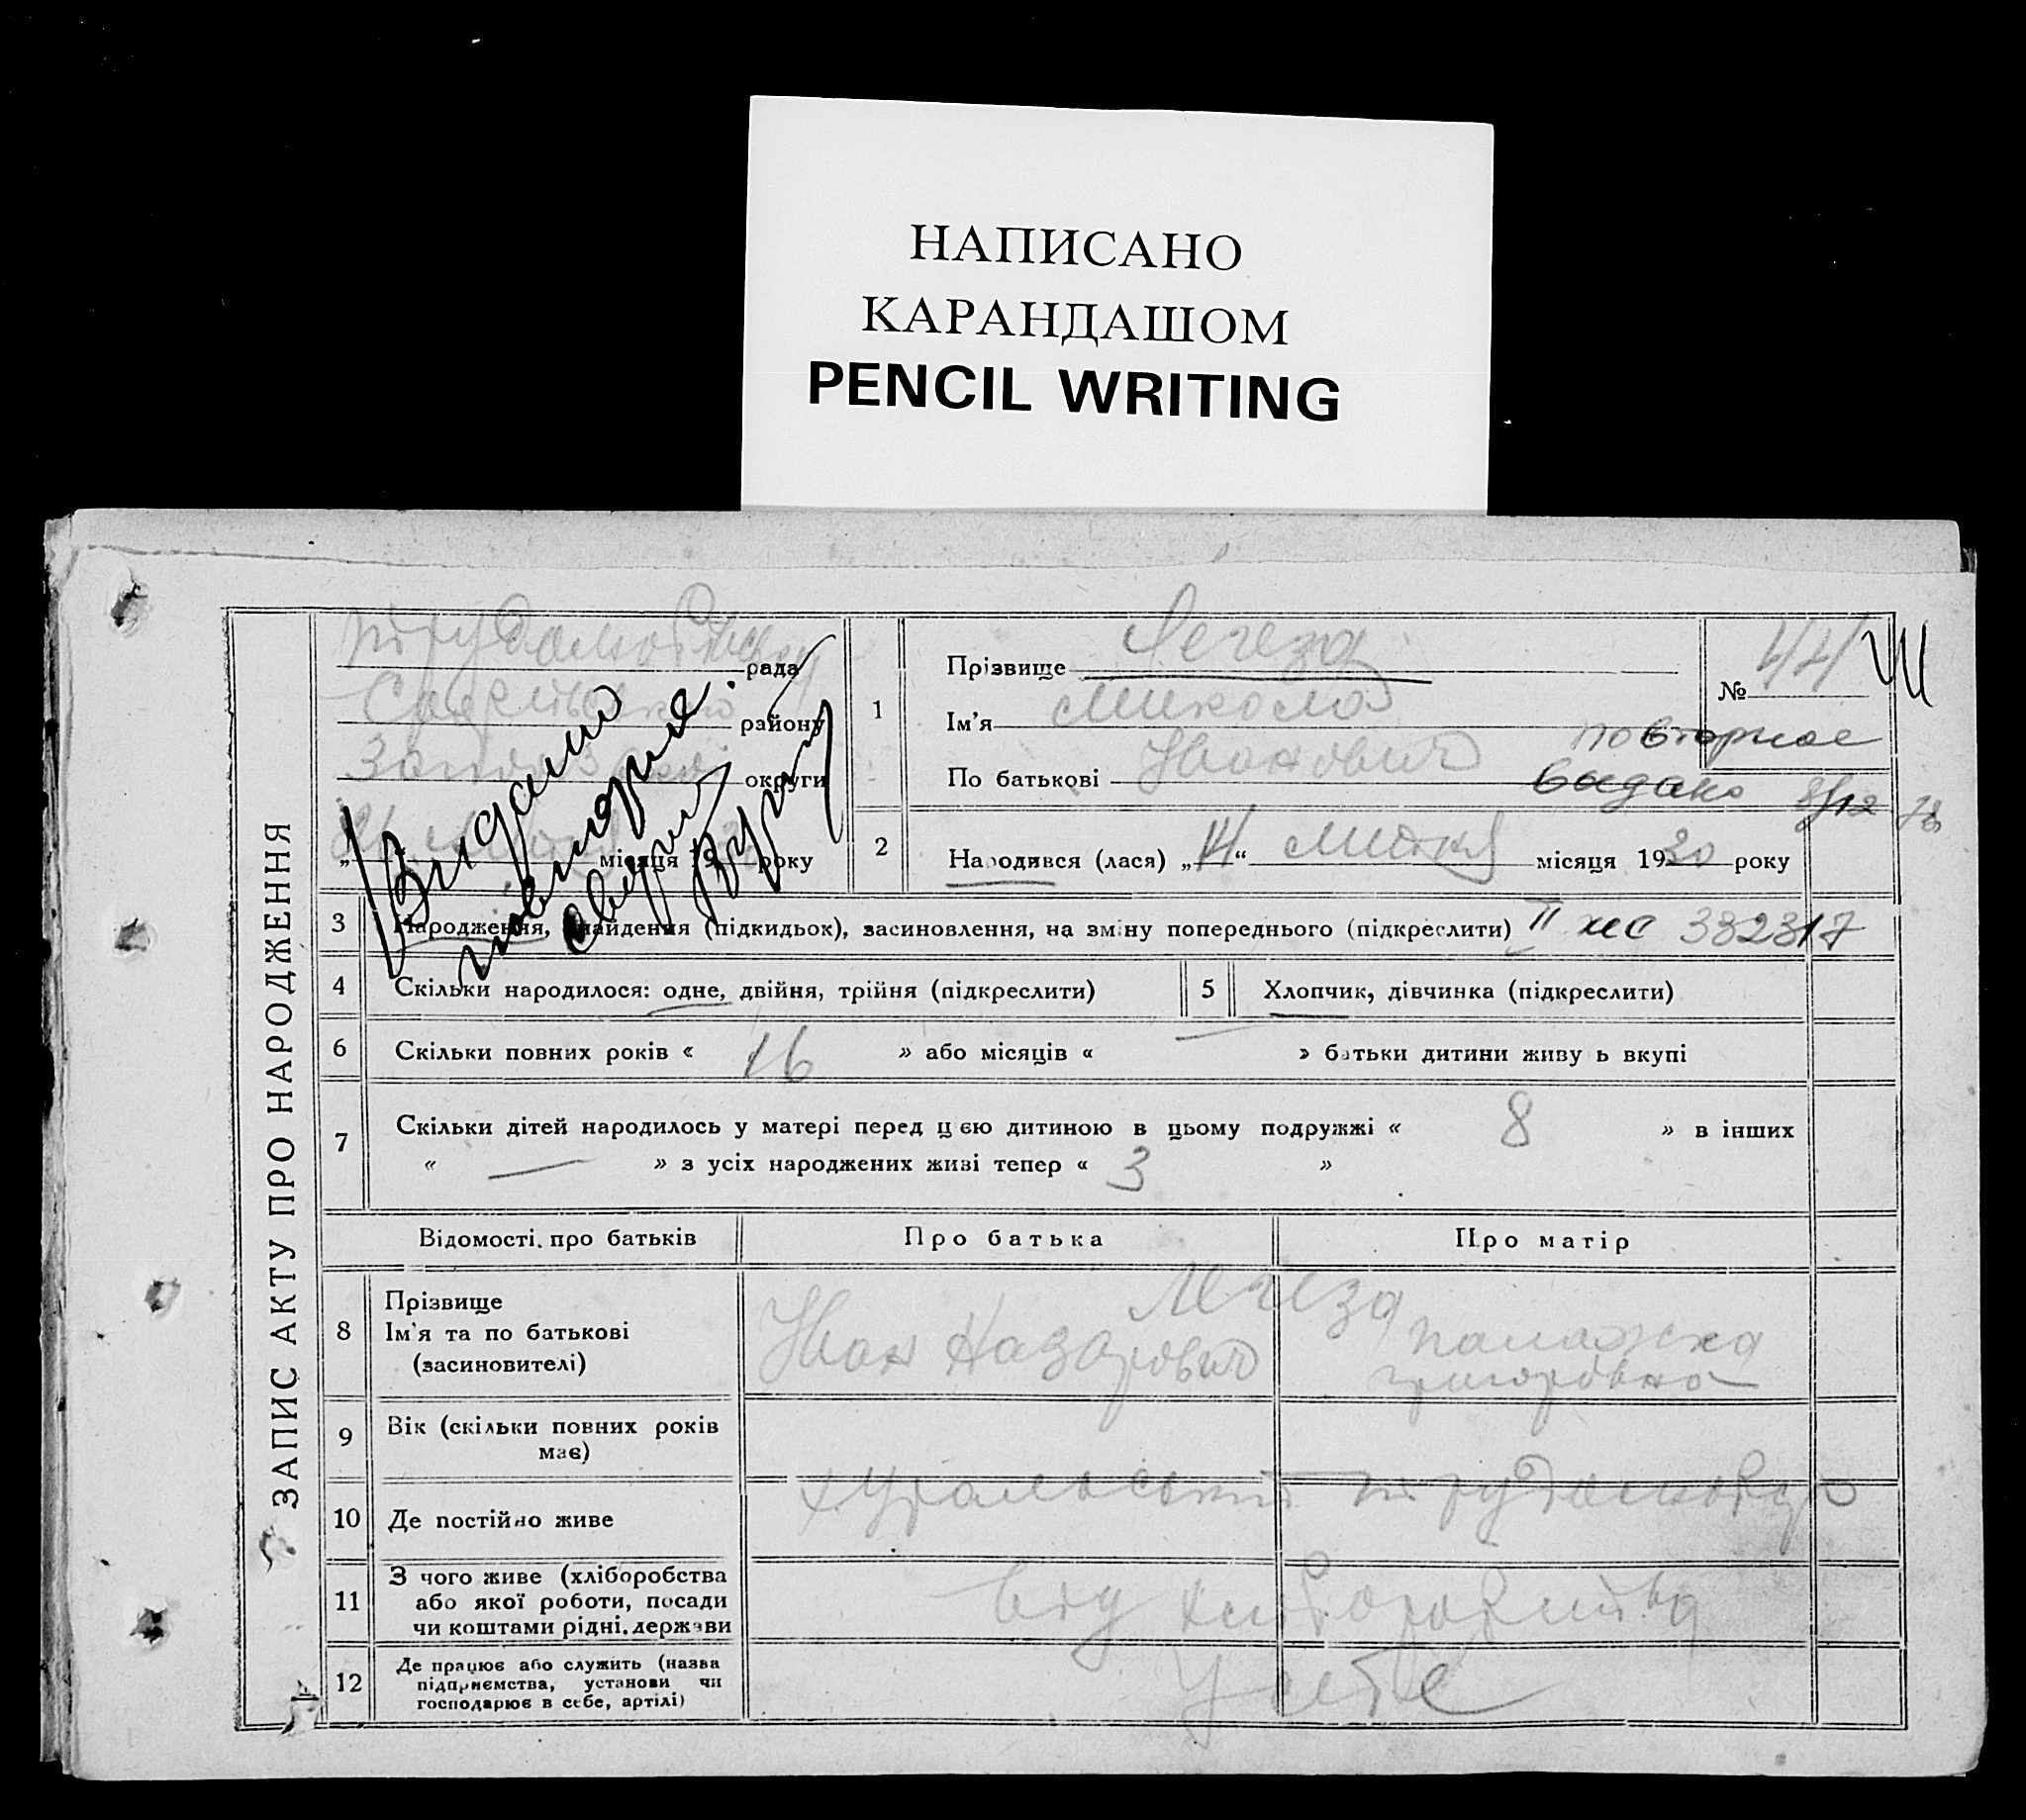 НАПИСАНО
КАРАНДАШОМ
PENCIL WRITING
ЗАПИС АКТУ ПРО НАРОДЖЕННЯ
рада
району
округи
місяця 19 року
Видано
повторне
1 Прізвище Легеза
Ім'я Микола
По батькові Іванович
№ 44
повторное
выдано 8/12 78
2 Народився (лася) „14“ липня місяця 1930 року
3 Народження, знайдення (підкидьок), засиновлення, на зміну попереднього (підкреслити) II 332317
4 Скільки народилося: одне, двійня, трійня (підкреслити) 5 Хлопчик, дівчинка (підкреслити)
6 Скільки повних років « 16 » або місяців « — » батьки дитини живуть вкупі
7 Скільки дітей народилось у матері перед цією дитиною в цьому подружжі « 8 » в інших
« — » з усіх народжених живі тепер « 3 »
Відомості про батьків Про батька Про матір
8 Прізвище Легеза
Ім'я та по батькові Іван Назарович Палажка
(засиновителі) Григорівна
9 Вік (скільки повних років
має)
10 Де постійно живе
11 З чого живе (хліборобства
або якої роботи, посади
чи коштами рідні, держави
від хліборобства
12 Де працює або служить (назва
підприємства, установи чи
господарює в себе, артілі)
У себе